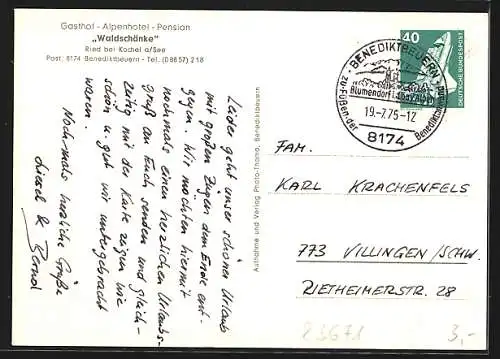 Gasthof - Alpenhotel - Pension
„Waldschänke"
Ried bei Kochel a/See
Post: 8174 Benediktbeuern - Tel. (0 88 57) 2 18
Leider geht unser schöner Urlaub
mit großen Zügen dem Ende ent-
gegen. Wir möchten hiermit
nochmals einen herzlichen Urlaubs-
gruß an Euch senden und gleich-
zeitig mit der Karte zeigen wie
schön u. gut wir untergebracht
waren.
Nochmals herzliche Grüße
Liesel & Bernd
Aufnahme und Verlag Photo-Thoma, Benediktbeuern
BENEDIKTBEUERN
Blumendorf
19.-7.75-12
8174
zu-Füßen-der
Benediktenwand
40
DEUTSCHE BUNDESPOST
FAM.
KARL KRACHENFELS
773 VILLINGEN/SCHW.
RIETHEIMERSTR. 28
23671
3,-